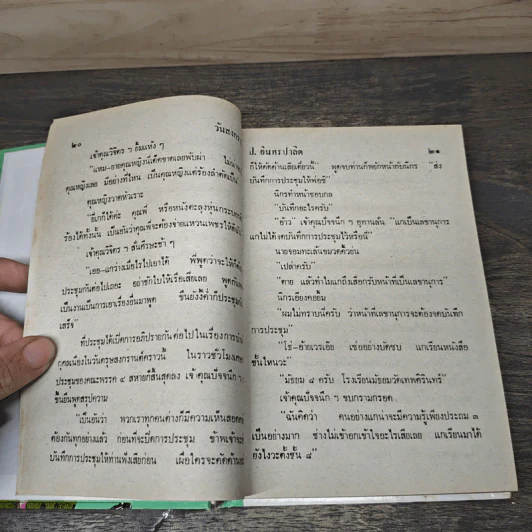 ๒๐
วันสงกร
เจ้าคุณวิจิตร ฯ ยิ้มแห้ง ๆ
"แหม–ยายคุณหญิงนี่เด็ดขาดเลยพับผ่า ไม่น่า
คุณหญิงเลย มีอย่างที่ไหน เป็นคุณหญิงแต่ร้องลำตัดเป็น"
คุณหญิงวาดหัวเราะ
"ยี่เกก็ได้ค่ะ คุณพี่ หรือหนังตะลุงหุ่นกระบอก
ร้องได้ทั้งนั้น เป็นยันว่าคุณพี่จะต้องจ่ายแหวนเพชรให้ดิฉัน
เจ้าคุณวิจิตร ฯ สั่นศีรษะช้า ๆ
"เออ–แกว่างเมื่อไรไปเอาได้ พี่พูดว่าจะให้ก็
ประชุมกันต่อไปเถอะ อย่าชักใบให้เรือเสียเลย พูดกัน
เป็นงานเป็นการเอาเรื่องอื่นมาพูด ขืนยังงี้ค่ำก็ประชุมไม่
เสร็จ
ที่ประชุมได้เปิดการอภิปรายกันต่อไปในเรื่องการบำเ
กุศลเนื่องในวันตรุษสงกรานต์คราวนี้ ในราวชั่วโมงเศษ
ประชุมของคณะพรรค ๔ สหายก็สิ้นสุดลง เจ้าคุณปัจจนึก ฯ
ขึ้นยืนพูดสรุปความ
"เป็นยันว่า พวกเราทุกคนต่างก็มีความเห็นสอด
ต้องกันทุกอย่างแล้ว ก่อนที่จะปิดการประชุม ข้าพเจ้าจะ
บันทึกการประชุมให้ท่านฟังเสียก่อน เผื่อใครจะคัดค้าน
ป. อินทรปาลิต
๒๑
ก็ให้คัดค้านเสียเดี๋ยวนี้" พูดจบท่านก็พยักหน้ากับนิกร "ส่ง
บันทึกการประชุมให้พ่อซิ"
นิกรทำหน้าชอบกล
"บันทึกอะไรครับ"
"อ้าว" เจ้าคุณปัจจนึก ฯ อุทานลั่น "แกเป็นเลขานุการ
แกไม่ได้จดบันทึกการประชุมไว้หรือนี่"
นายจอมทะเล้นขมวดคิ้วย่น
"เปล่าครับ"
"ตาย แล้วทำไมแกถึงเสือกรับหน้าที่เป็นเลขานุการ"
นิกรเอียงคอยิ้ม
"ผมไม่ทราบนี่ครับ ว่าหน้าที่เลขานุการจะต้องจดบันทึก
การประชุม"
"โธ่–อ้ายเวรเอ๊ย เซ่ออย่างบัดซบ แกเรียนหนังสือ
ชั้นไหนวะ"
"มัธยม ๘ ครับ โรงเรียนมัธยมวัดเทพศิรินทร์"
เจ้าคุณปัจจนึก ฯ ขบกรามกรอด
"ฉันคิดว่า คนอย่างแกน่าจะมีความรู้เพียงประถม ๓
เป็นอย่างมาก ช่างไม่เข้าอกเข้าใจอะไรเสียเลย แกเรียนมาได้
ยังไงวะตั้งชั้น ๘"